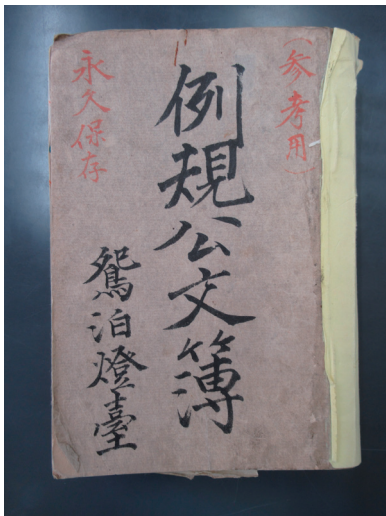 （参考用）
例規公文簿
永久保存
鴛泊燈臺